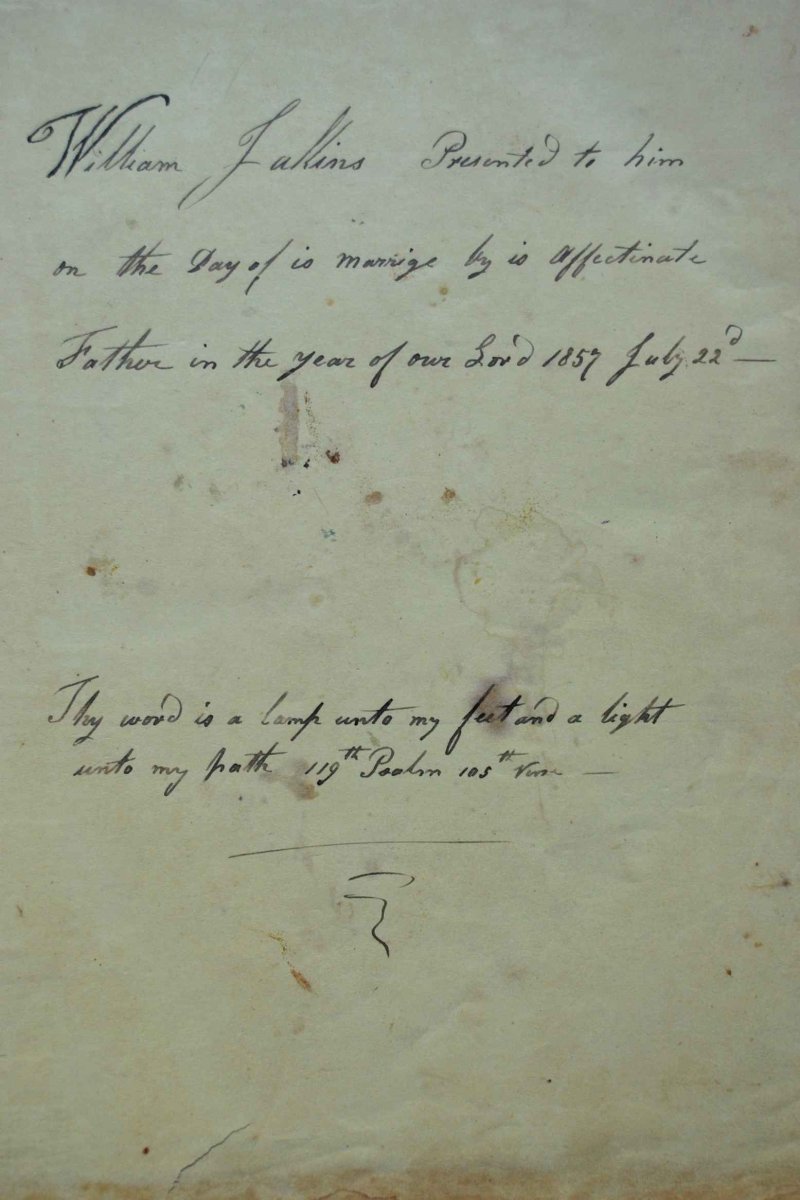 William Jallins Presented to him
on the Day of is marrige by is affectinate
Father in the year of our Lord 1857 July 22d —
Thy word is a lamp unto my feet and a light
unto my path 119th Psalm 105th Verse —